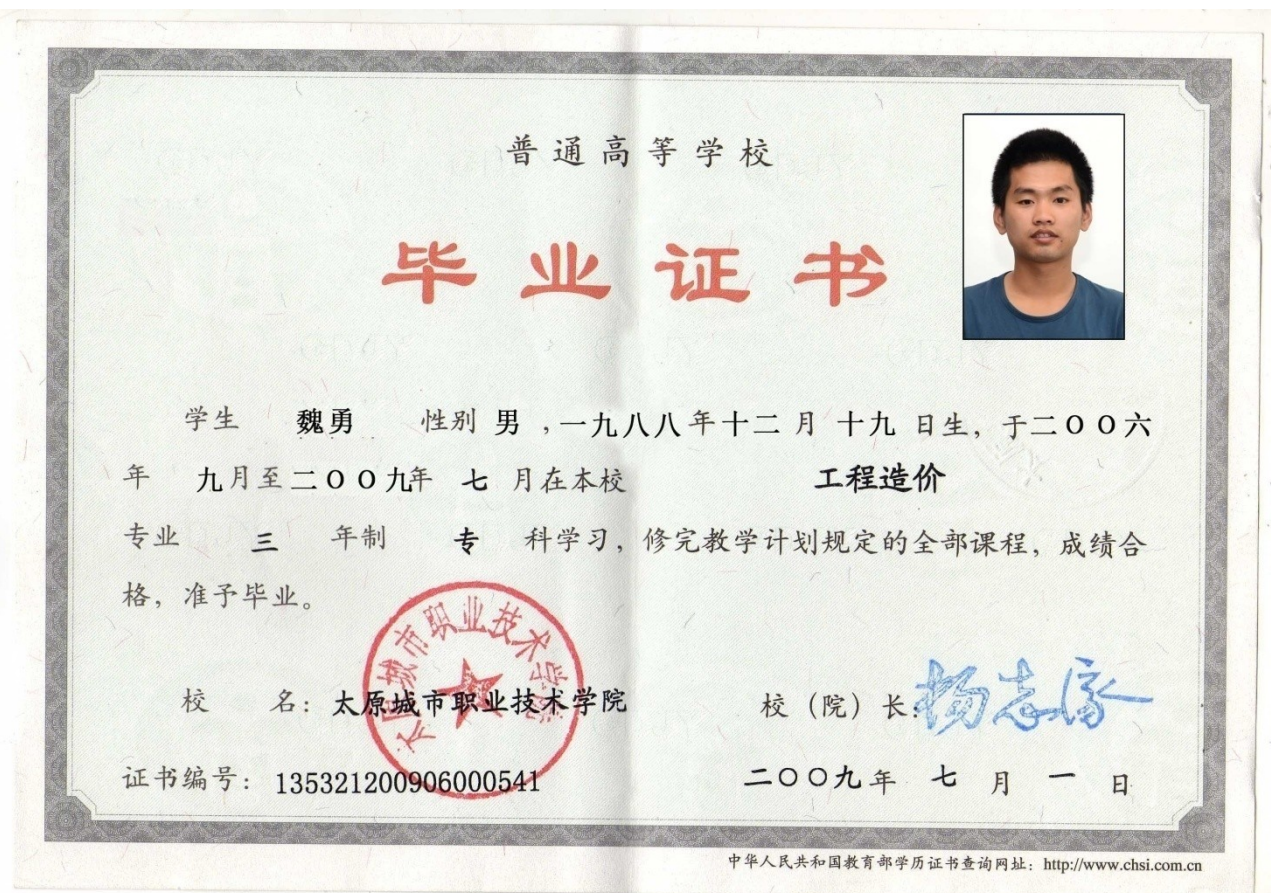 普通高等学校
毕业证书
学生 魏勇 性别 男，一九八八年十二月十九日生，于二〇〇六
年 九月至二〇〇九年 七 月在本校 工程造价
专业 三 年制 专 科学习，修完教学计划规定的全部课程，成绩合
格，准予毕业。
太原城市职业技术学院
校 名：太原城市职业技术学院 校（院）长：
证书编号：135321200906000541 二〇〇九年 七 月 一 日
中华人民共和国教育部学历证书查询网址：http://www.chsi.com.cn